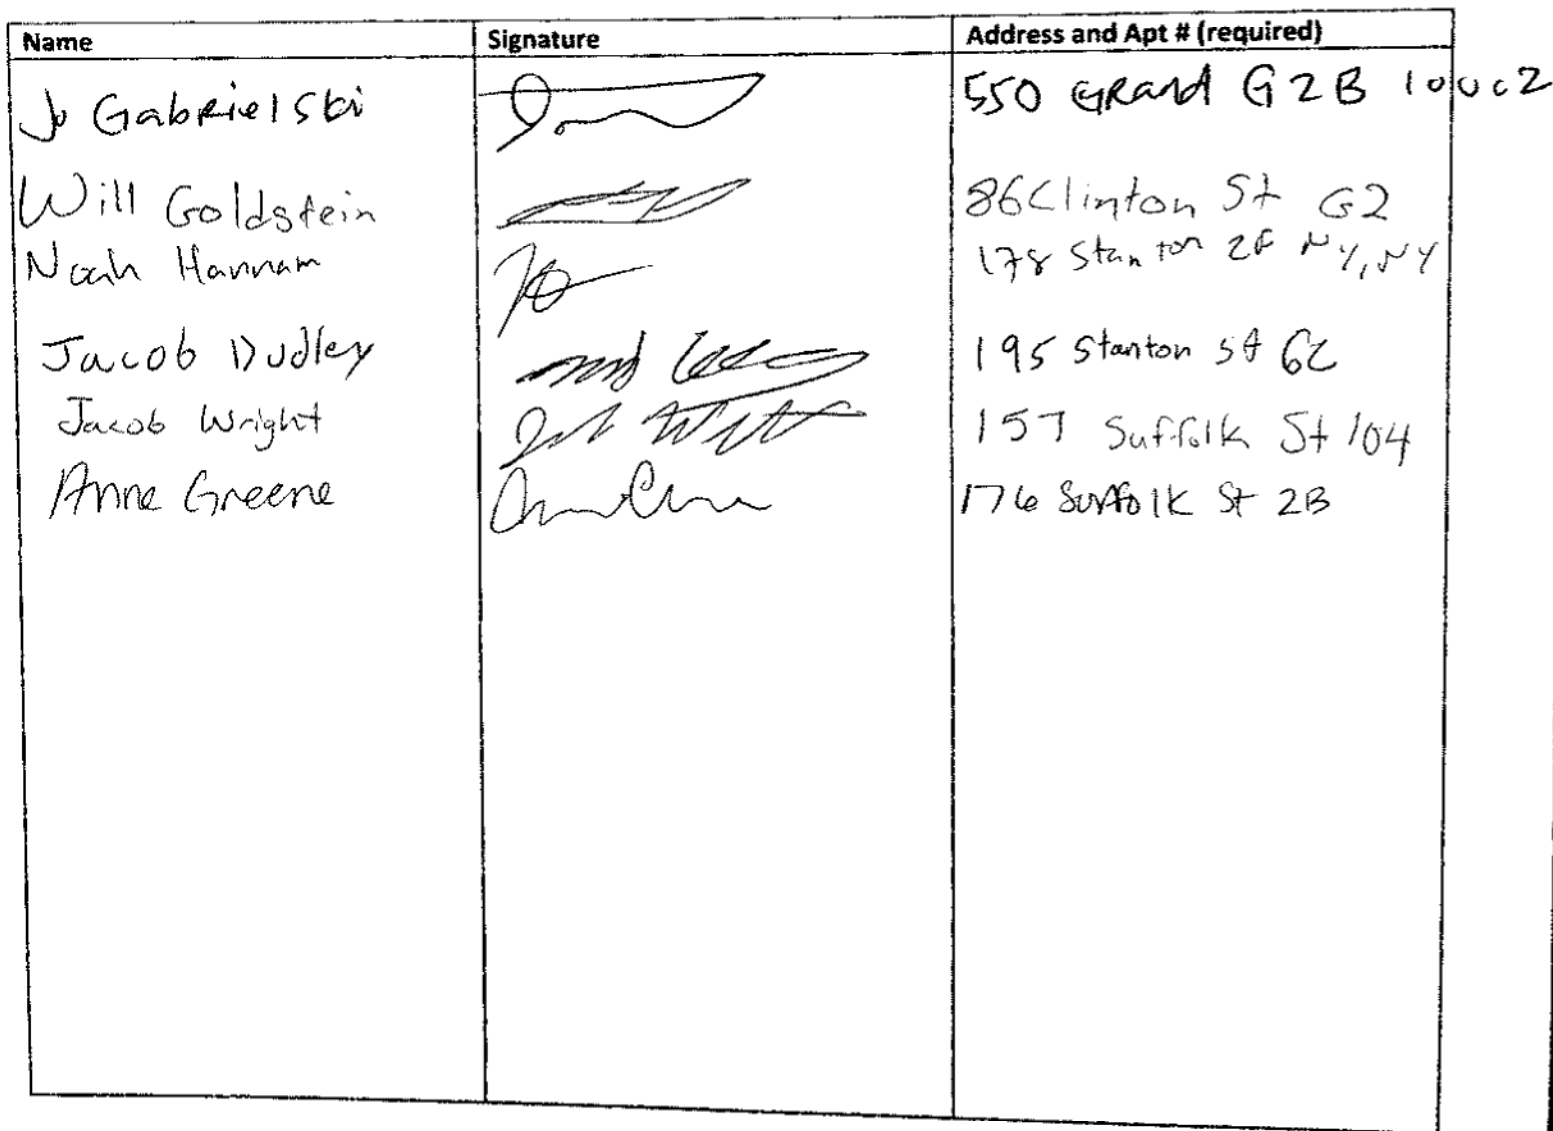 Name Signature Address and Apt # (required)
Jo Gabrielski 550 Grand G2B 10002
Will Goldstein 86 Clinton St G2
Noah Hannam 178 Stanton 2F NY, NY
Jacob Dudley 195 Stanton St 6C
Jacob Wright 157 Suffolk St 104
Anne Greene 176 Suffolk St 2B